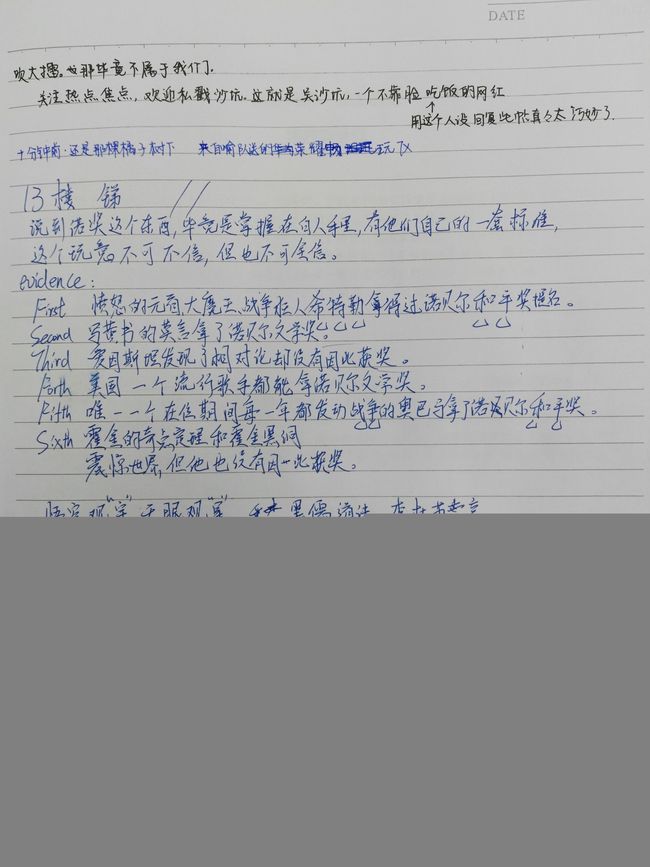 DATE
吹大擂。这那毕竟不属于我们了。
关注热点焦点，欢迎私戳沙坑。这就是吴沙坑，一个不靠脸吃饭的网红
用这个人设回复此帖真々太巧妙了
十分钟前·还是那棵橘子树下 来自喻队送的荣耀畅玩7X
13楼 锑
说到诺奖这个东西，毕竟是掌握在白人手里，有他们自己的一套标准，
这个玩意不可不信，但也不可全信。
evidence:
First 愤怒的元首大魔王、战争狂人希特勒拿得过诺贝尔和平奖提名。
Second 写黄书的莫言拿了诺贝尔文学奖。
Third 爱因斯坦发现了相对论却没有因此获奖。
Forth 美国一个流行歌手都能拿诺贝尔文学奖。
Fifth 唯一一个在位期间每一年都发动战争的奥巴马拿了诺贝尔和平奖。
Sixth 霍金的奇点定理和霍金黑洞
震惊世界，但他也没有因此获奖。